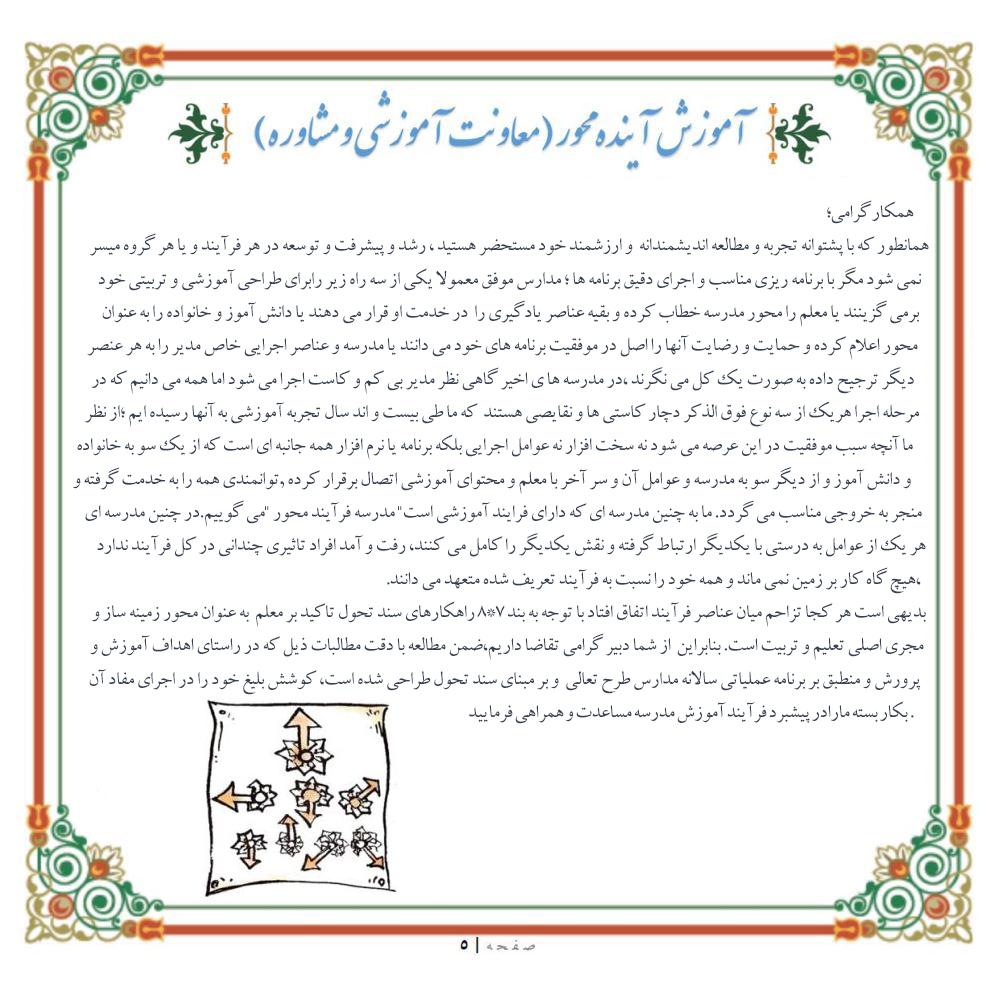 آموزش آینده محور (معاونت آموزشی و مشاوره)
همکار گرامی؛
همانطور که با پشتوانه تجربه و مطالعه اندیشمندانه و ارزشمند خود مستحضر هستید، رشد و پیشرفت و توسعه در هر فرآیند و یا هر گروه میسر
نمی شود مگر با برنامه ریزی مناسب و اجرای دقیق برنامه ها؛ مدارس موفق معمولا یکی از سه راه زیر رابرای طراحی آموزشی و تربیتی خود
برمی گزینند یا معلم را محور مدرسه خطاب کرده و بقیه عناصر یادگیری را در خدمت او قرار می دهند یا دانش آموز و خانواده را به عنوان
محور اعلام کرده و حمایت و رضایت آنها را اصل در موفقیت برنامه های خود می دانند یا مدرسه و عناصر اجرایی خاص مدیر را به هر عنصر
دیگر ترجیح داده به صورت یک کل می نگرند ،در مدرسه های اخیر گاهی نظر مدیر بی کم و کاست اجرا می شود اما همه می دانیم که در
مرحله اجرا هریک از سه نوع فوق الذکر دچار کاستی ها و نقایصی هستند که ما طی بیست و اند سال تجربه آموزشی به آنها رسیده ایم ؛از نظر
ما آنچه سبب موفقیت در این عرصه می شود نه سخت افزار نه عوامل اجرایی بلکه برنامه یا نرم افزار همه جانبه ای است که از یک سو به خانواده
و دانش آموز و از دیگر سو به مدرسه و عوامل آن و سر آخر با معلم و محتوای آموزشی اتصال برقرار کرده ,توانمندی همه را به خدمت گرفته و
منجر به خروجی مناسب می گردد. ما به چنین مدرسه ای که دارای فرایند آموزشی است" مدرسه فرآیند محور "می گوییم.در چنین مدرسه ای
هر یک از عوامل به درستی با یکدیگر ارتباط گرفته و نقش یکدیگر را کامل می کنند، رفت و آمد افراد تاثیری چندانی در کل فرآیند ندارد
،هیچ گاه کار بر زمین نمی ماند و همه خود را نسبت به فرآیند تعریف شده متعهد می دانند.
بدیهی است هر کجا تزاحم میان عناصر فرآیند اتفاق افتاد با توجه به بند ۷*۸ راهکارهای سند تحول تاکید بر معلم به عنوان محور زمینه ساز و
مجری اصلی تعلیم و تربیت است. بنابراین از شما دبیر گرامی تقاضا داریم،ضمن مطالعه با دقت مطالبات ذیل که در راستای اهداف آموزش و
پرورش و منطبق بر برنامه عملیاتی سالانه مدارس طرح تعالی و بر مبنای سند تحول طراحی شده است، کوشش بلیغ خود را در اجرای مفاد آن
.بکار بسته مارادر پیشبرد فرآیند آموزش مدرسه مساعدت و همراهی فرمایید
صفحه | ۵